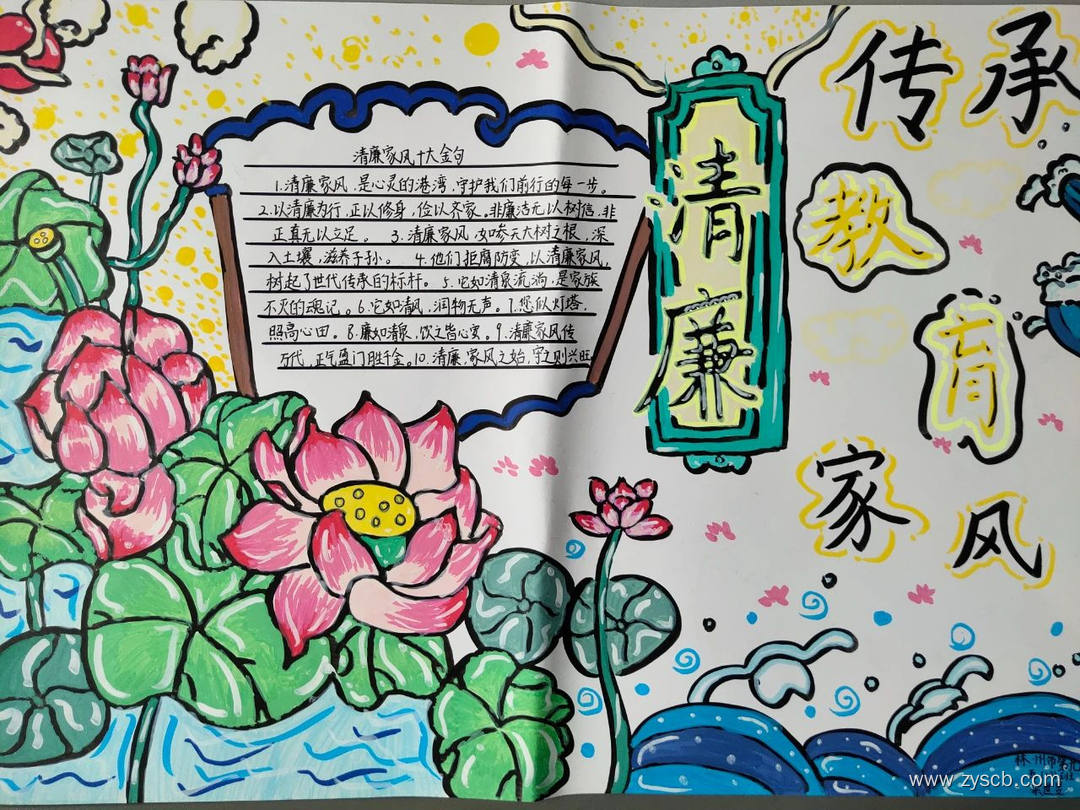 传承
清廉
教育
家风
清廉家风十大金句
1.清廉家风,是心灵的港湾,守护我们前行的每一步。
2.以清廉为行,正以修身,俭以齐家。非廉洁无以树信,非
正真无以立足。 3.清廉家风,如参天大树之根,深
入土壤,滋养子孙。 4.他们拒腐防变,以清廉家风,
树起了世代传承的标杆。5.它如清泉流淌,是家族
不灭的魂记。6.它如清风,润物无声。7.您似灯塔,
照高心田。8.廉如清泉,饮之皆心安。9.清廉家风传
万代,正气盈门胜千金。10.清廉,家风之始,守之则兴旺
林州市
www.zyscb.com